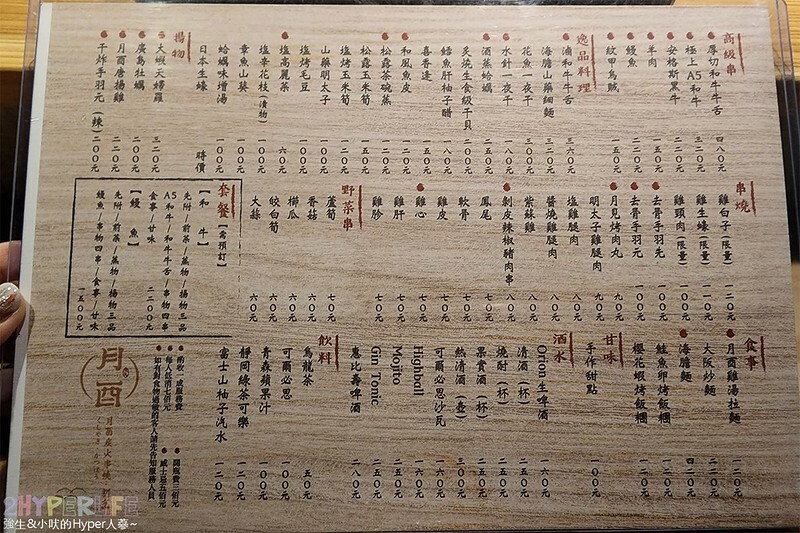 高級串
厚切和牛牛舌 四八〇元
極上A5和牛 三二〇元
安格斯黑牛 二二〇元
羊肉
鰻魚
紋甲烏賊 一五〇元
逸品料理
滷和牛牛舌 三六〇元
海膽山藥細麵 三二〇元
花魚一夜干 三〇〇元
水針一夜干 一八〇元
酒蒸蛤蠣
炙燒生食級干貝
鱈魚肝柚子醋 一八〇元
喜香逢 一五〇元
和風魚皮 一二〇元
松露茶碗蒸
松露玉米筍 一五〇元
塩烤玉米筍 一二〇元
山藥明太子
塩烤毛豆
塩高麗菜 六〇元
塩辛花枝(漬物) 一〇〇元
章魚山葵 一〇〇元
蛤蠣味增湯 一〇〇元
日本生蠔 時價
揚物
大蝦天婦羅 三二〇元
廣島牡蠣 二二〇元
月酉唐揚雞 二二〇元
干炸手羽元(辣) 二〇〇元
串燒
雞白子(限量) 一二〇元
雞生蠔(限量) 一一〇元
雞頸肉(限量) 一〇〇元
去骨手羽先 一〇〇元
去骨手羽元 一〇〇元
月見烤肉丸 九〇元
明太子雞腿肉 九〇元
塩雞腿肉 八〇元
醬燒雞腿肉 八〇元
紫蘇雞 八〇元
剝皮辣椒豬肉串 八〇元
鳳尾 七〇元
軟骨 七〇元
雞皮 七〇元
雞心 七〇元
雞肝 七〇元
雞胗 七〇元
野菜串
蘆筍 七〇元
香菇 六〇元
櫛瓜 六〇元
皎白筍 六〇元
大蒜 六〇元
套餐【需預訂】
【和牛】
先附/前菜/蒸物/揚物三品
A5和牛/和牛牛舌/串物四串
食事/甘味 二二〇〇元
【鰻魚】
先附/前菜/蒸物/揚物三品
鰻魚/串物四串/食事/甘味
一五〇〇元
食事
月酉雞湯拉麵 一二〇元
大阪炒麵 二二〇元
海膽麵 四二〇元
鮭魚卵烤飯糰
櫻花蝦烤飯糰 一二〇元
甘味
手作甜點
酒水
Orion生啤酒 一六〇元
清酒(杯) 二五〇元
燒酎(杯) 二五〇元
果實酒(杯) 二五〇元
熱清酒(壺) 三〇〇元
可爾必思沙瓦 一六〇元
Highball 一六〇元
Mojito 二五〇元
Gin Tonic 二五〇元
惠比壽啤酒 二八〇元
飲料
烏龍茶 五〇元
可爾必思 一〇〇元
青森蘋果汁 一〇〇元
靜岡綠茶可樂 一二〇元
富士山柚子汽水 一二〇元
酌收一成服務費
每人低消七佰元
即有對食物過敏的客人請先告知服務人員
開瓶費三佰元
威士忌五佰元
月酉
2HYPERLIFE
強生&小吠的Hyper人蔘~